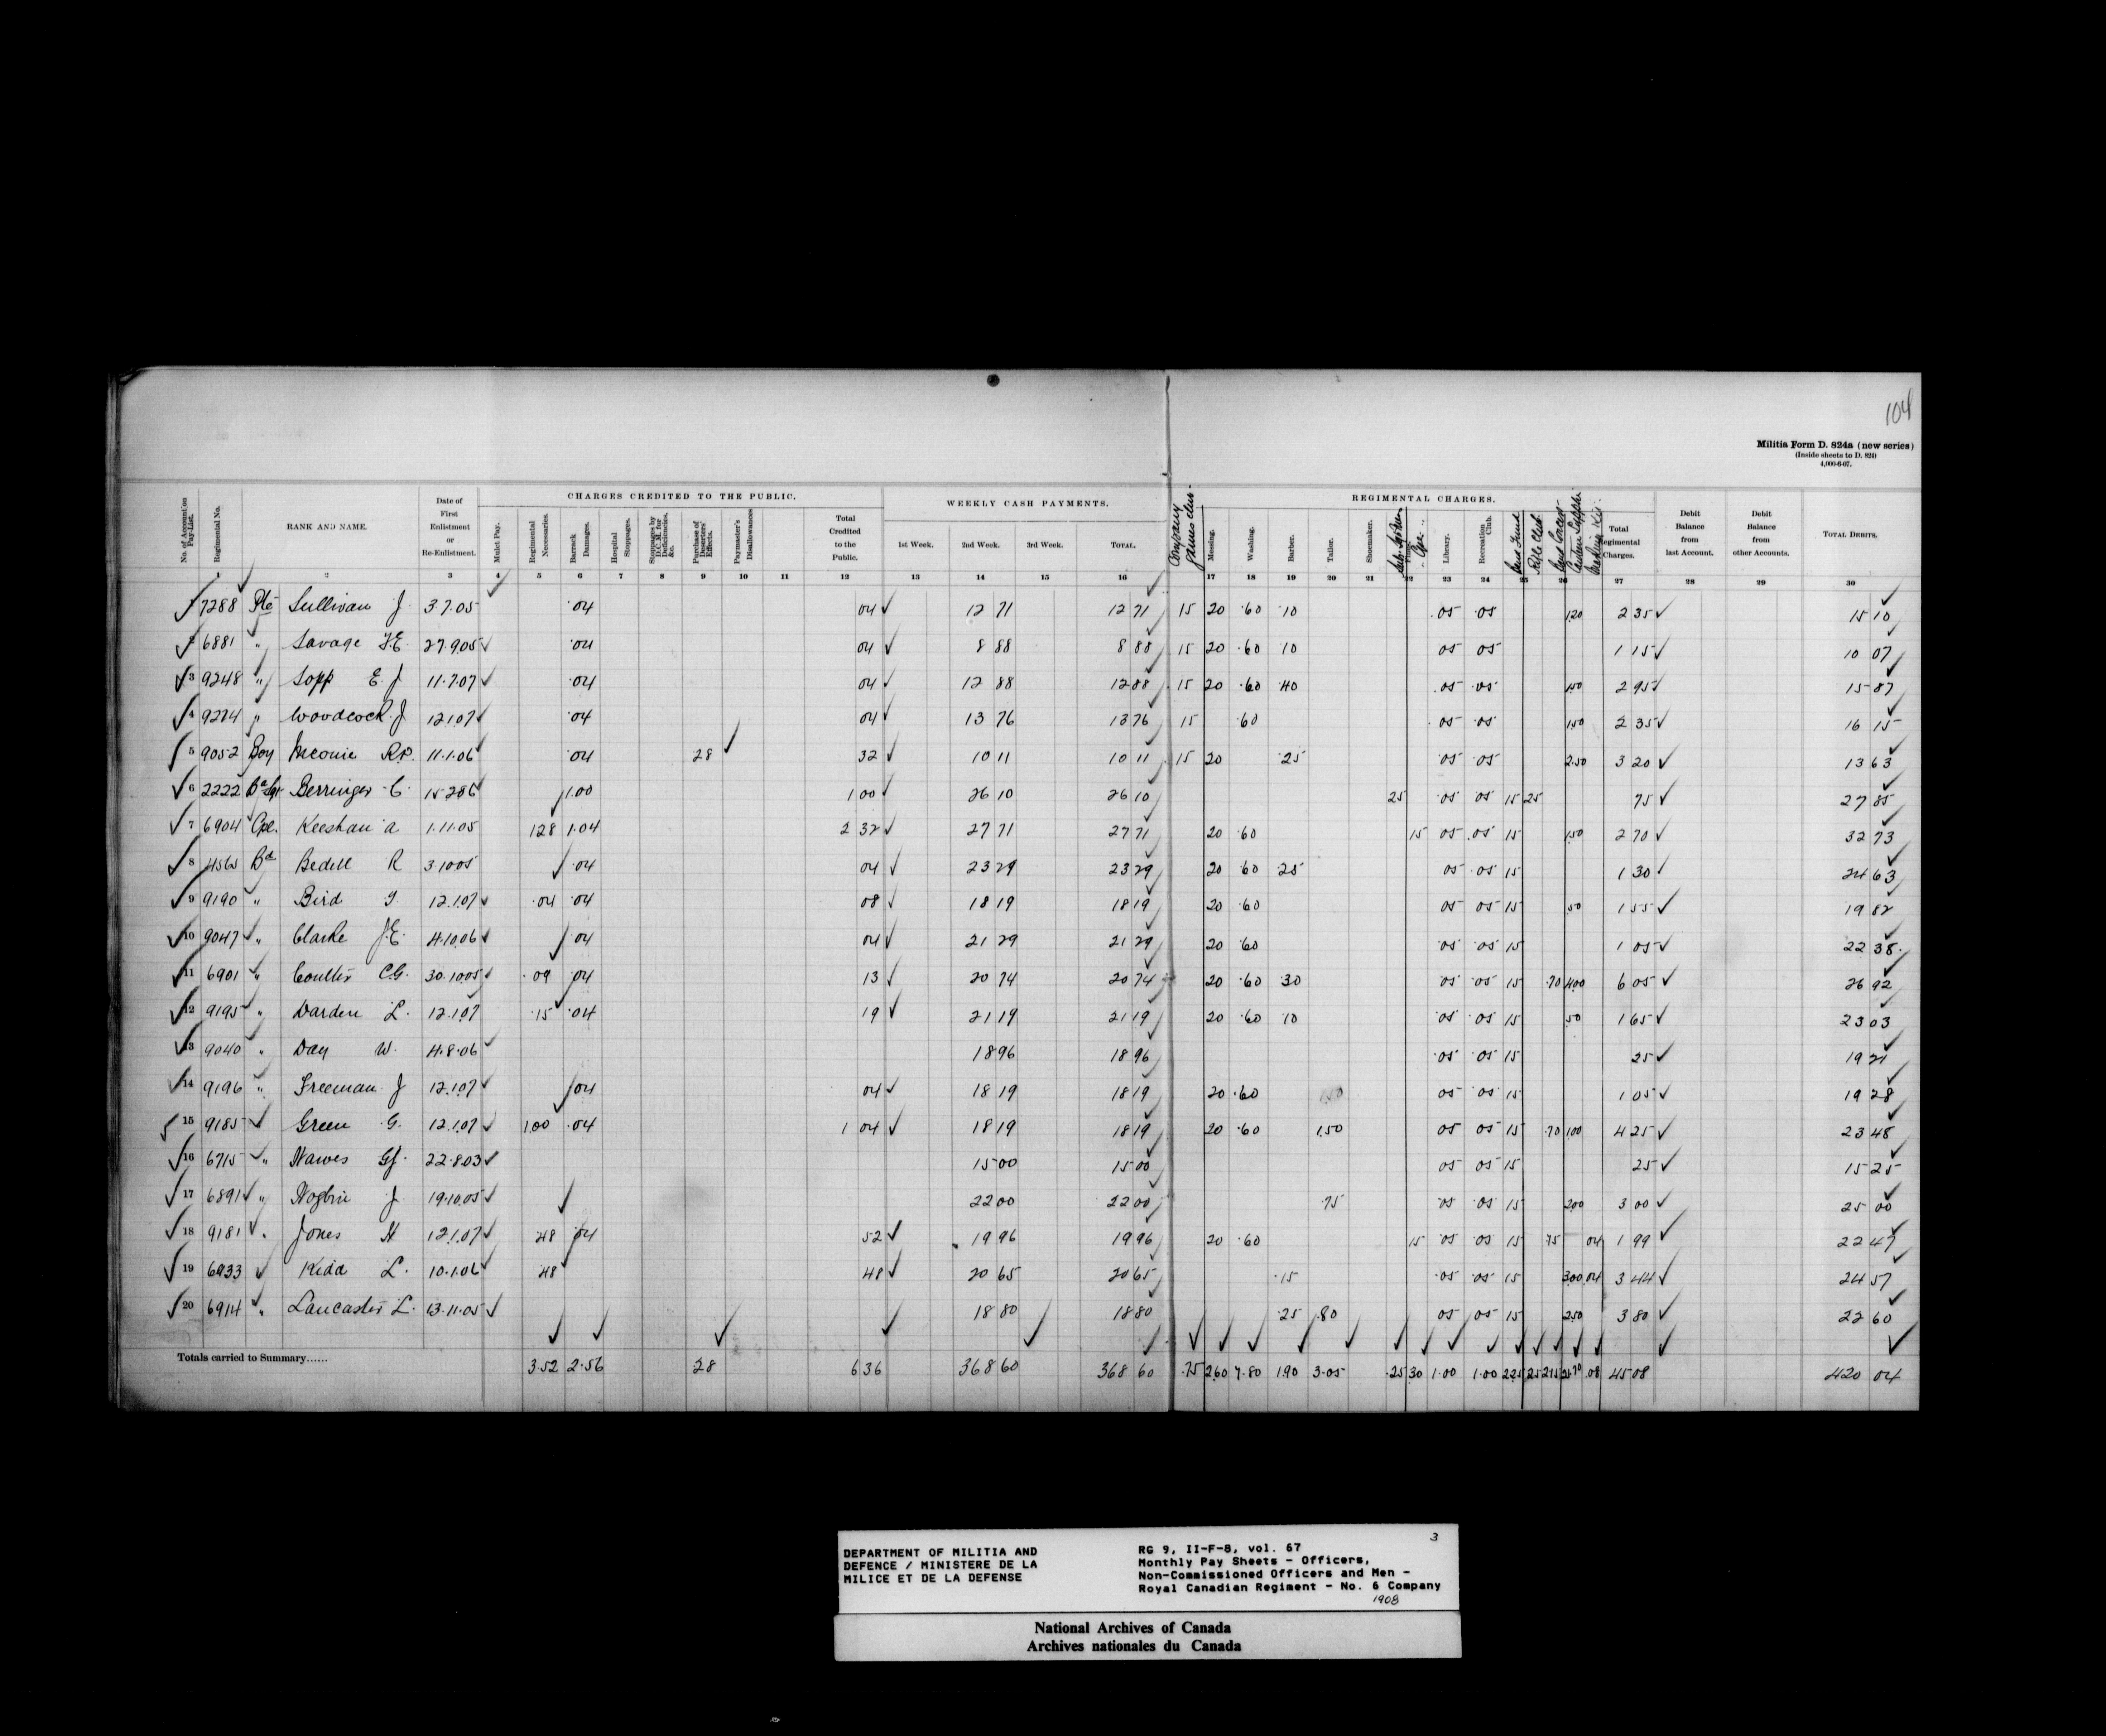 104
Militia Form D. 824a (new series)
(Inside sheets to D. 824)
4,000-6-07.
CHARGES CREDITED TO THE PUBLIC.
WEEKLY CASH PAYMENTS.
REGIMENTAL CHARGES.
No. of Account on Pay-List. Regimental No. RANK AND NAME. Date of First Enlistment or Re-Enlistment. Mulct Pay. Regimental Necessaries. Barrack Damages. Hospital Stoppages. Stoppages by D.C.M. for Deficiencies, &c. Purchase of Deserters' Effects. Paymaster's Disallowances Total Credited to the Public. 1st Week. 2nd Week. 3rd Week. TOTAL. Company Games Club. Messing. Washing. Barber. Tailor. Shoemaker. Library. Recreation Club. Rifle Club Total Regimental Charges. Debit Balance from last Account. Debit Balance from other Accounts. TOTAL DEBITS.
1 2 3 4 5 6 7 8 9 10 11 12 13 14 15 16 17 18 19 20 21 22 23 24 25 26 27 28 29 30
1 7288 Pte Sullivan J. 3.7.05 .04 04 12 71 12 71 15 20 .60 .10 .05 .05 1.20 2 35 15 10
2 6881 " Savage F.E. 27.9.05 .04 04 8 88 8 88 15 20 .60 10 05 05 1 15 10 07
3 9248 " Sopp E.J 11.7.07 .04 04 12 88 12 88 15 20 .60 .40 .05 .05 1.50 2 95 15 87
4 9274 " Woodcock J 12.1.07 .04 04 13 76 13 76 15 .60 .05 .05 1.50 2 35 16 15
5 9052 Boy R.P. 11.1.06 .04 28 32 10 11 10 11 15 20 .25 .05 .05 2.50 3 20 13 63
6 2222 Berringer C. 15.2.06 1.00 1 00 26 10 26 10 25 .05 .05 15 25 75 27 85
7 6904 Cpl. Keeshan A 1.11.05 1 28 1.04 2 32 27 71 27 71 20 .60 15 05 .05 15 1.50 2 70 32 73
8 Bd Bedell R 3.10.05 .04 04 23 29 23 29 20 .60 .25 05 .05 15 1 30 24 63
9 9190 " Bird 12.1.07 .04 .04 08 18 19 18 19 20 .60 05 05 15 .50 1 55 19 82
10 9047 " Clarke J.E. 4.10.06 .04 04 21 29 21 29 20 .60 .05 .05 15 1 05 22 38
11 6901 " Coulter C.G. 30.10.05 .09 .04 13 20 74 20 74 20 .60 .30 .05 .05 15 .70 4.00 6 05 26 92
12 9195 " Darden L. 12.1.07 .15 .04 19 21 19 21 19 20 .60 .10 .05 .05 15 .50 1 65 23 03
13 9040 " Day W. 4.8.06 18 96 18 96 .05 .05 15 25 19 21
14 9196 " Freeman J 12.1.07 .04 04 18 19 18 19 20 .60 05 05 15 1 05 19 28
15 9185 Green G. 12.1.07 1.00 .04 1 04 18 19 18 19 20 .60 1.50 05 05 15 .70 1.00 4 25 23 48
16 6715 " Hawes G.J. 22.8.03 15 00 15 00 05 05 15 25 15 25
17 6891 " J 19.10.05 22 00 22 00 .75 .05 .05 15 2.00 3 00 25 00
18 9181 " Jones H 12.1.07 48 .04 52 19 96 19 96 20 .60 15 .05 .05 15 .75 04 1 99 22 47
19 6933 Kidd L. 10.1.06 48 48 20 65 20 65 .15 .05 .05 15 3.00 04 3 44 24 57
20 6914 " Lancaster L. 13.11.05 18 80 18 80 .25 .80 05 05 15 2.50 3 80 22 60
Totals carried to Summary...... 3.52 2.56 28 6 36 368 60 368 60 .75 2.60 7.80 1.90 3.05 .25 30 1.00 1.00 2.25 .25 2.15 .08 45 08 420 04
3
DEPARTMENT OF MILITIA AND
DEFENCE / MINISTERE DE LA
MILICE ET DE LA DEFENSE
RG 9, II-F-8, vol. 67
Monthly Pay Sheets - Officers,
Non-Commissioned Officers and Men -
Royal Canadian Regiment - No. 6 Company
1908
National Archives of Canada
Archives nationales du Canada